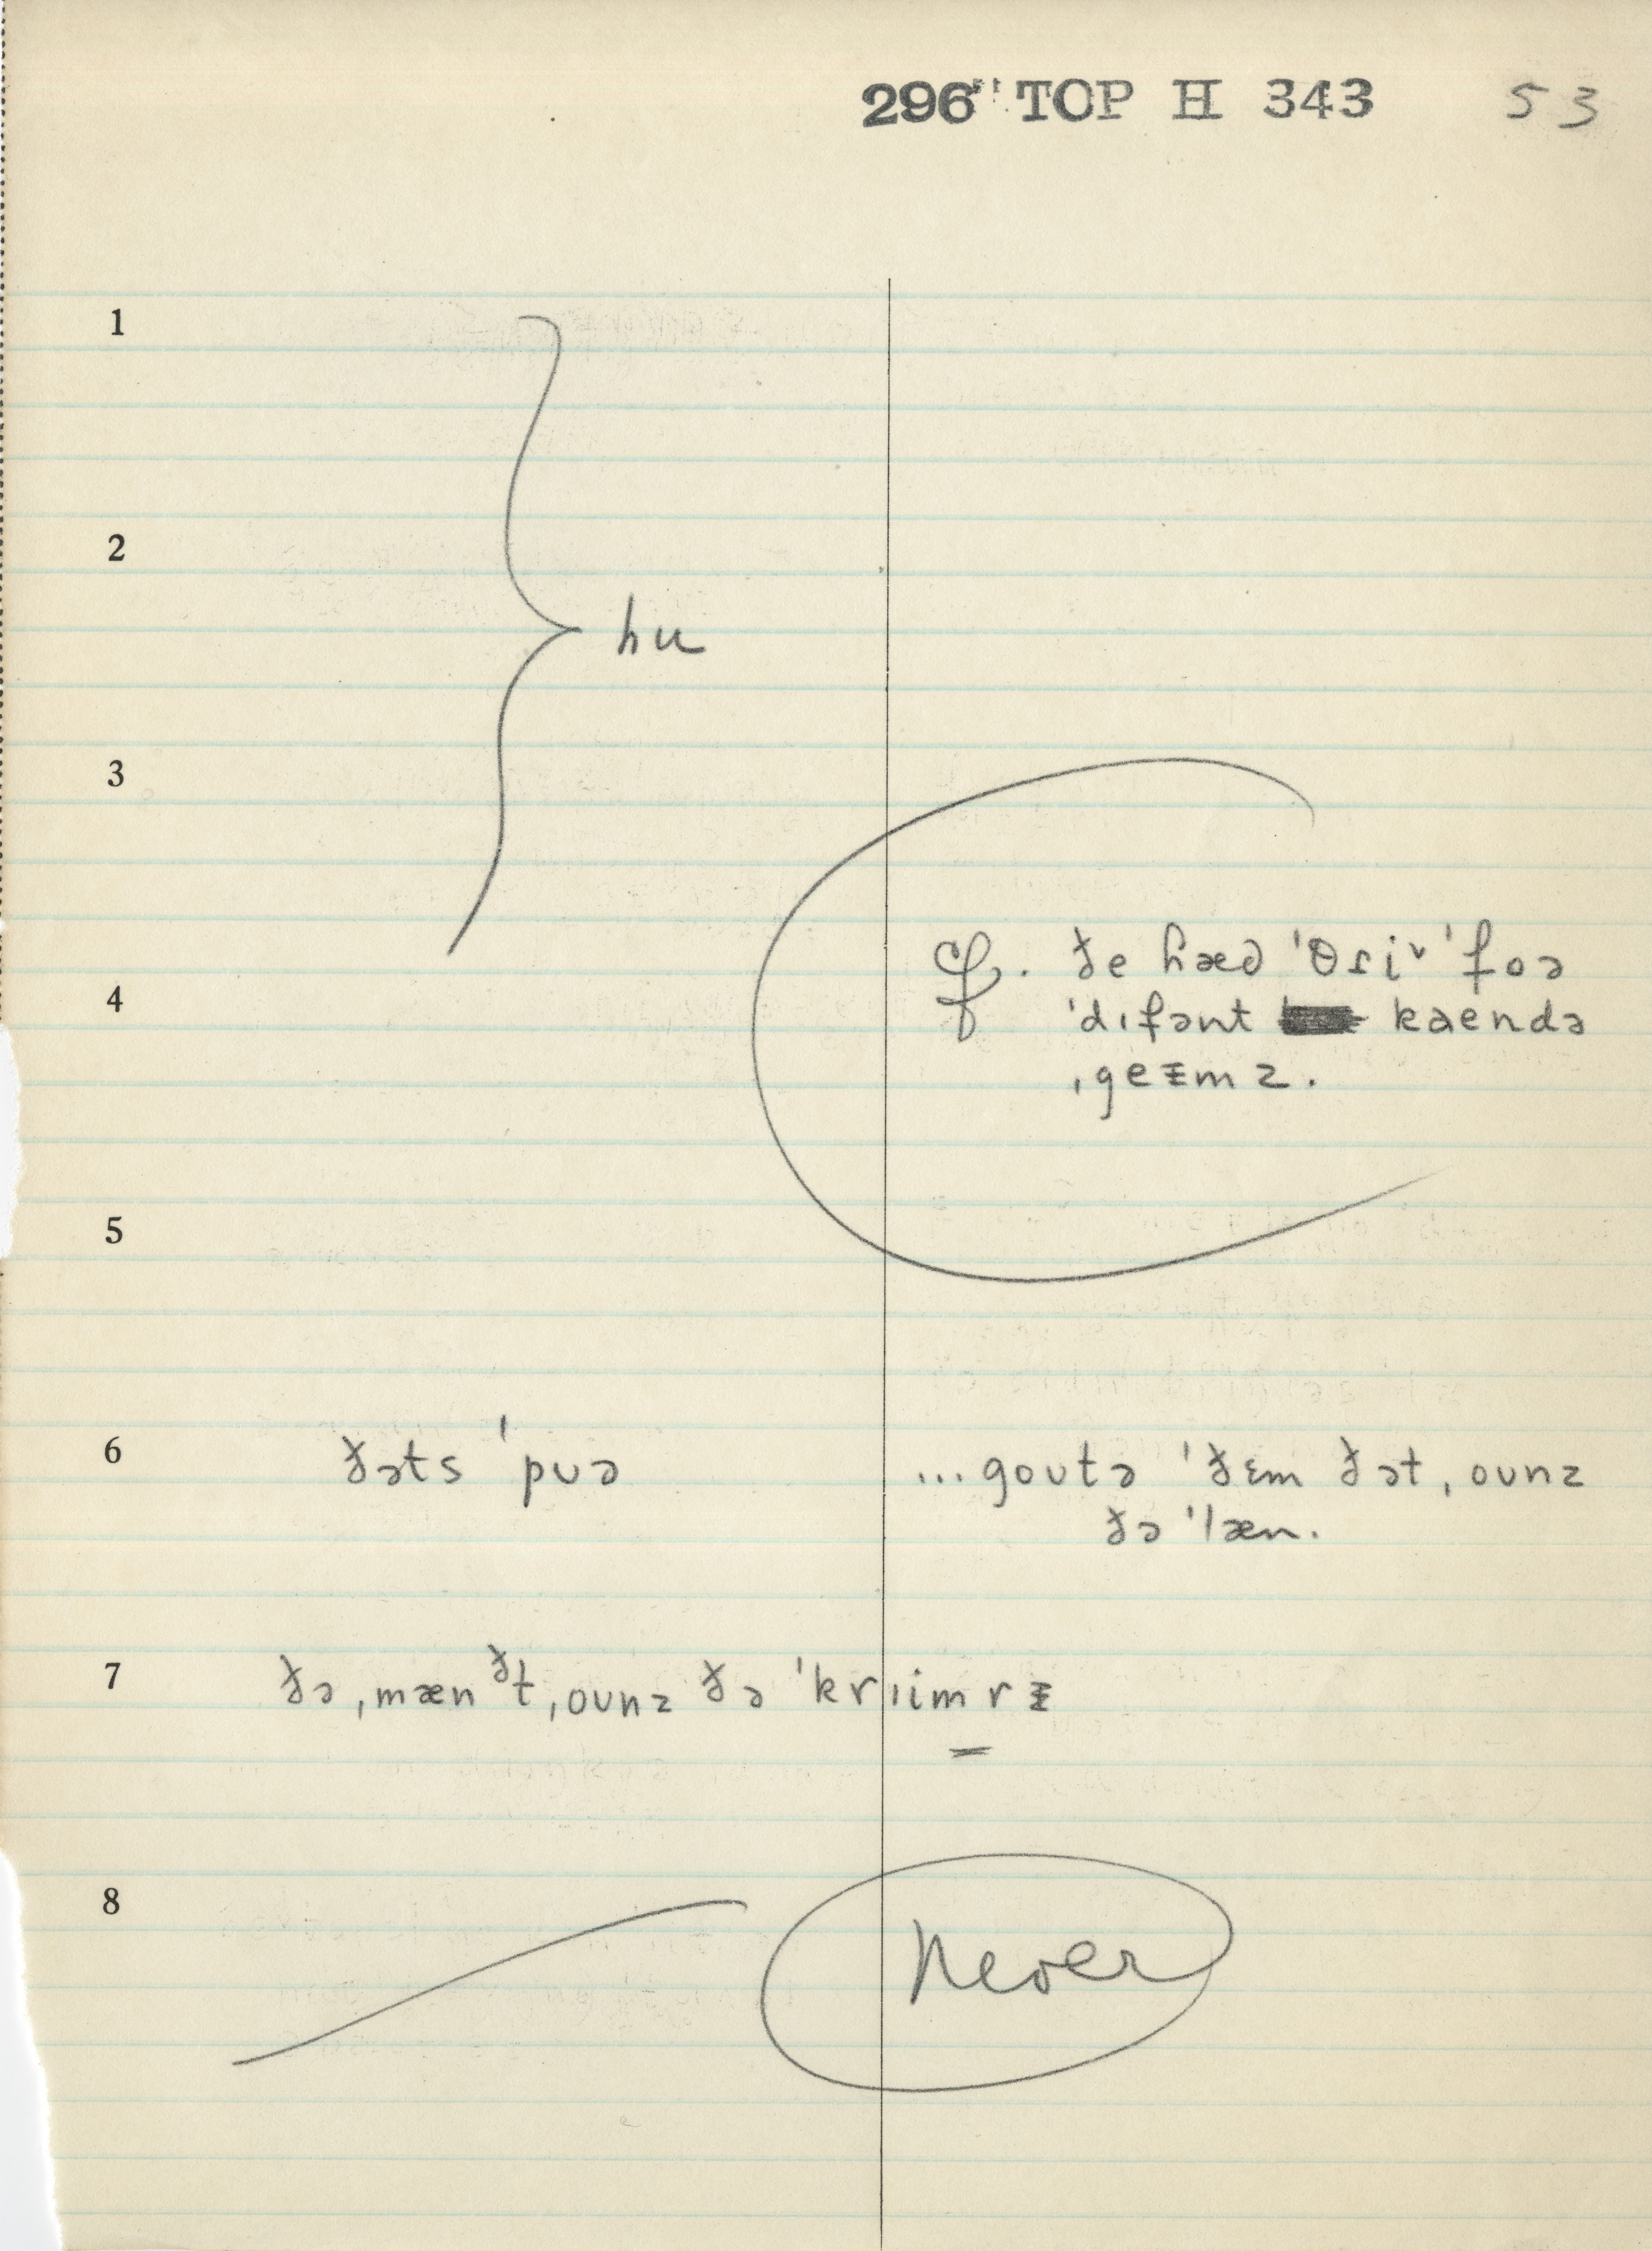 296" TOP H 343 53
1
2
hu
3
4
cf. ðe hæd 'θriᵛ 'foə
'dɪfənt kaendə
ˌgeɪmz.
5
6 ðəts 'puə ...goutə 'ðɛm ðət ˌounz
ðə 'læn.
7 ðə ˌmæn ðt ˌounz ðə 'kr ɪimrɪ
8
Never